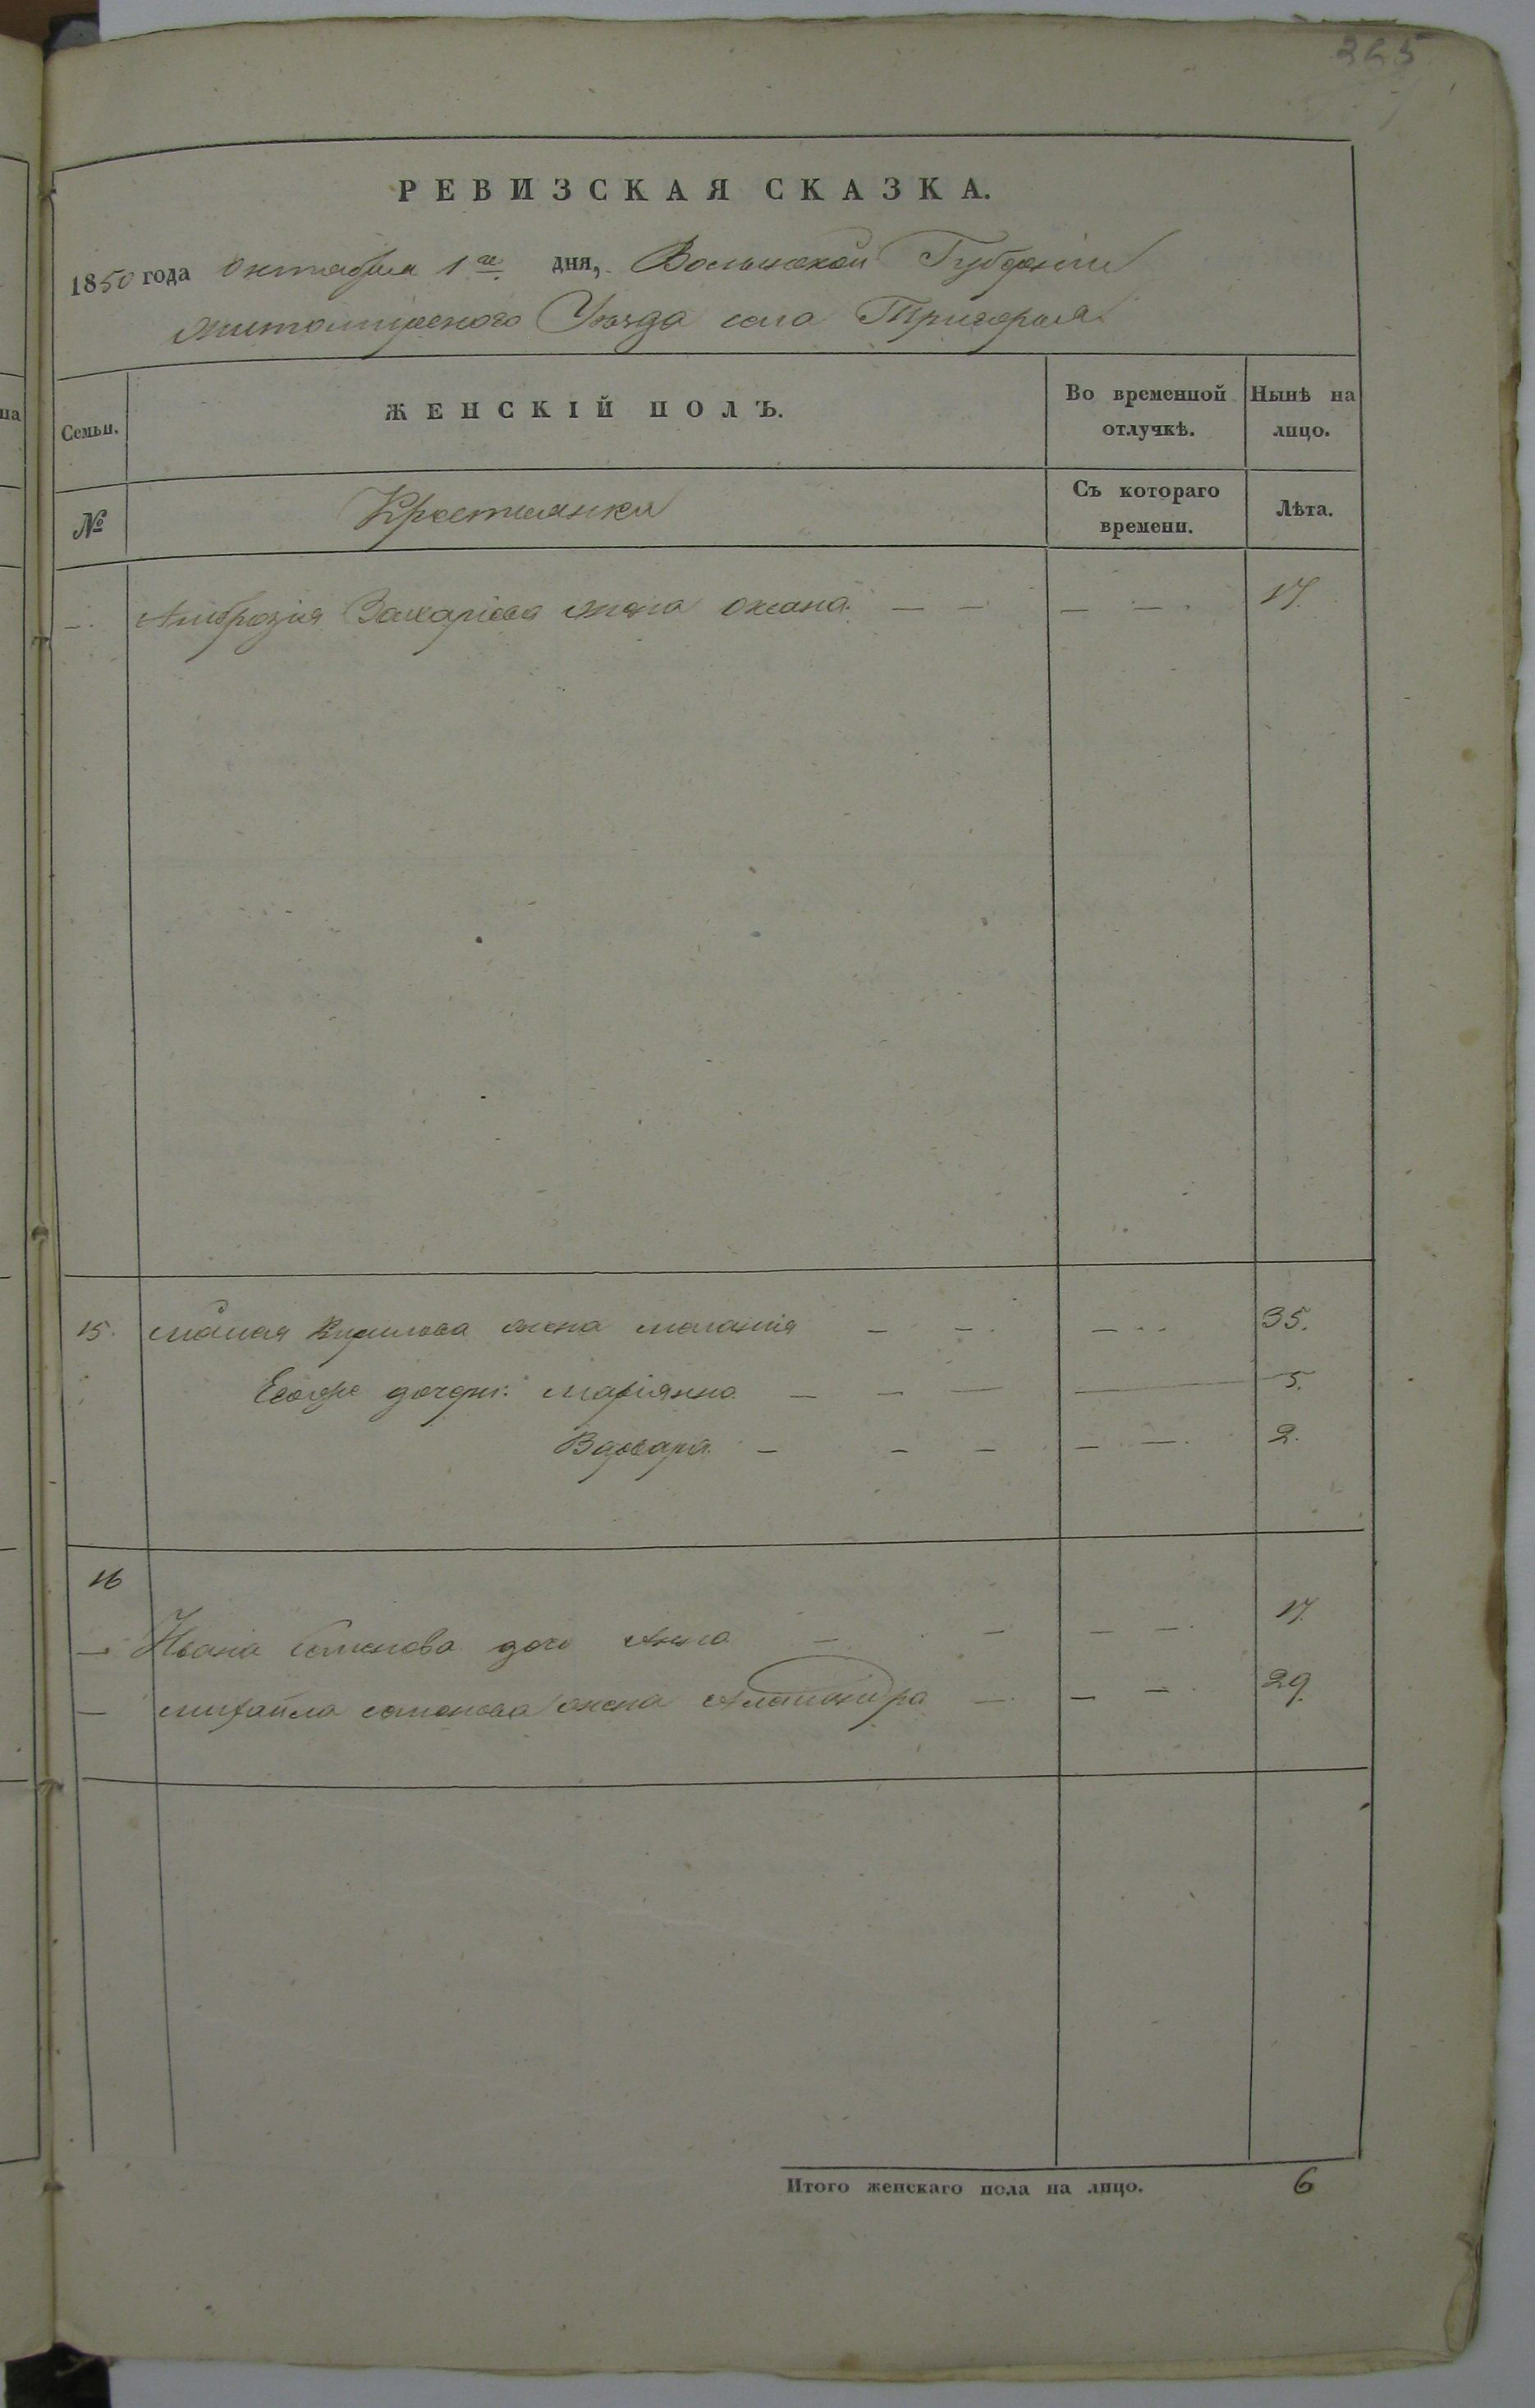 265
РЕВИЗСКАЯ СКАЗКА.
1850 года Октября 1го дня, Волынской Губерніи
Житомирского Уезда села Тригорья
Семьи.
ЖЕНСКІЙ ПОЛЪ.
Во временной отлучкѣ.
Нынѣ на лицо.
№
Крестьянки
Съ котораго времени.
Лѣта.
— Амброзія Захаріева жена Оксана — — — — 17.
15. Кирилова жена Меланія — — — — 35.
Его дочери: Маріянна — — — — 5.
Варвара — — — — — 2.
16
— Ивана Семенова дочь Анна — — — — 17.
— Михайла Семенова жена — — — 29.
Итого женскаго пола на лицо. 6
на